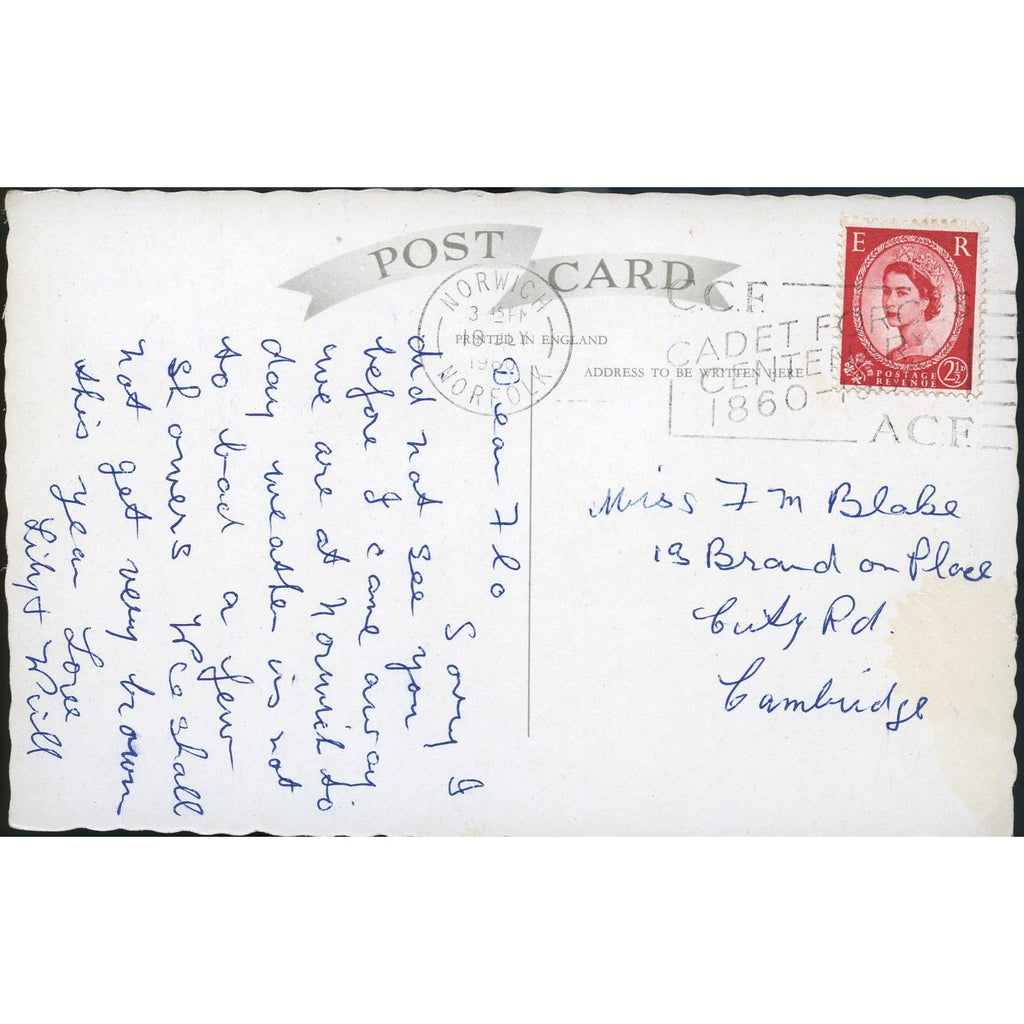 POST CARD
NORWICH
NORFOLK
PRINTED IN ENGLAND
ADDRESS TO BE WRITTEN HERE
C.C.F.
CADET FORCES
CENTENARY
1860-
A.C.F.
E R
POSTAGE
REVENUE
2½D
Dear Flo
Sorry I
did not see you
before I came away
we are at Norwich to
day weather is not
to bad a few
showers We shall
not get very brown
this year Love
Lily + Will
Miss F M Blake
Brand on Place
City Rd.
Cambridge